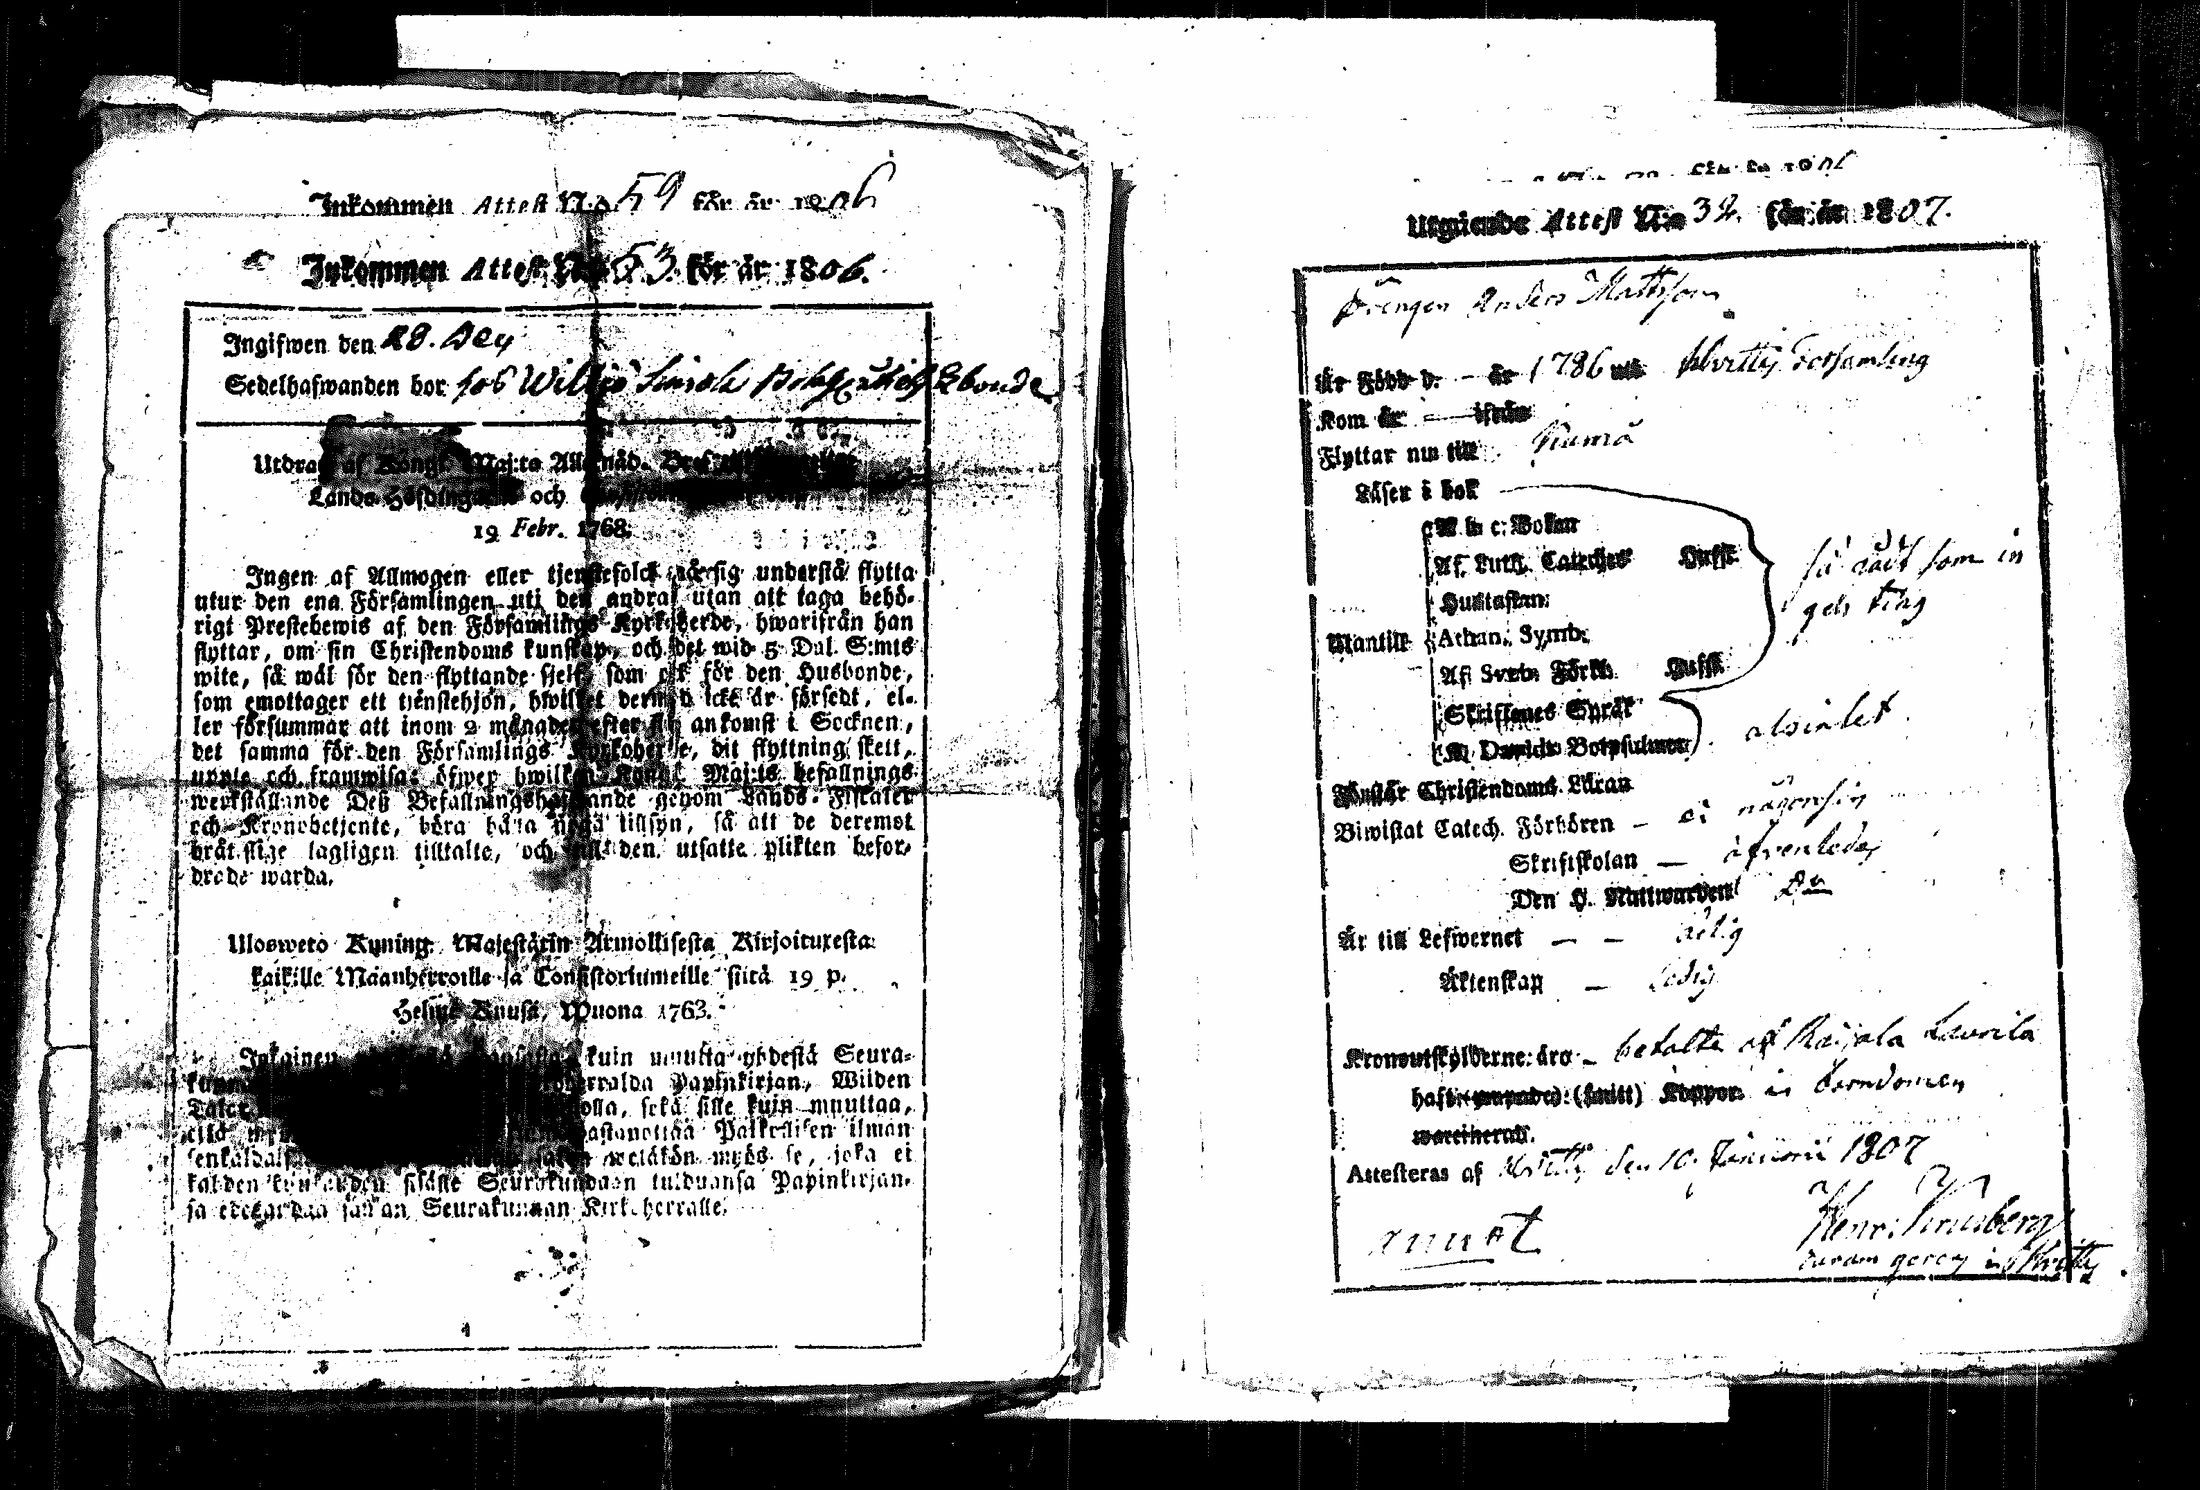 Inkommen Attest N:o 59 för år 1806
Inkommen Attest N:o 53 för år 1806.
Ingifwen den 28. Dec
Sedelhafwanden bor hos
Utdrag af Kongl. Maj:ts Allernåd. Bref
Lands Höfdingarne och
19 Febr. 1768.
Ingen af Allmogen eller tjenstefolck må sig understå flytta
utur den ena Församlingen uti den andra utan att taga behö-
rigt Prestebewis af den Församlings Kyrkoherde, hwarifrån han
flyttar, om sin Christendoms kunskap, och det wid 5 Dal. S:mts
wite, så wäl för den flyttande sjelf, som ock för den Husbonde,
som emottager ett tjenstehjon, hwilket dermed icke är försedt, el-
ler försummar att inom 2 månader efter sin ankomst i Socknen,
det samma för den Församlings Kyrkoherde, dit flyttning skett,
upple och framwisa: öfwer hwilken Kongl. Maj:ts befallnings
werkställande Deß Befallningshafwande genom Lands-Fiskaler
och Kronobetjente, böra hålla noga tillsyn, så att de deremot
brätslige lagligen tilltalte, och till den utsatte plikten befor-
drade warda.
Ulosweto Kuning: Majestätin Armollisesta Kirjoituxesta
kaikille Maanherroille ja Consistoriumeille siitä 19 p.
Helme Kuusa, Wuona 1763.
kuin muutta yhdestä Seura-
Papinkirjan, Wilden
Taler sekä sille kuin muuttaa,
Palkollisen ilman
welkäkön myös se, joka ei
sisälle Seurakundaan tulduansa Papinkirjan-
sa edeskandaa saman Seurakunnan Kirkoherralle.
Utgående Attest N:o 32. för år 1807.
Drengen Anders Mattsson
Är Född d. — år 1786 uti församling
Kom år — ifrån
Flyttar nu till Kumo
Läser i bok
A b c: Bokan
Af Luth. Cateches Hufst.
Hustaflan:
Utantill Athan. Symb.
Af Sveb. Förkl. Hufst.
Skriftenes Språk
K. Davids Botpsalmer
så godt som in
gen ting
alsintet
Förstår Christendoms Läran
Biwistat Catech. Förhören — ei någonsin
Skriftskolan — äfvenledes
Den H. Nattwarden D:o
Är till Lefwernet — — ärlig
Äktenskap — ledig
Kronoutskylderne: äro — betalte af Raijala Laurila
haft (ympade) (smitt) Koppor i barndomen
Attesteras af den 10. Januarii 1807
Henr:
curam gerens in